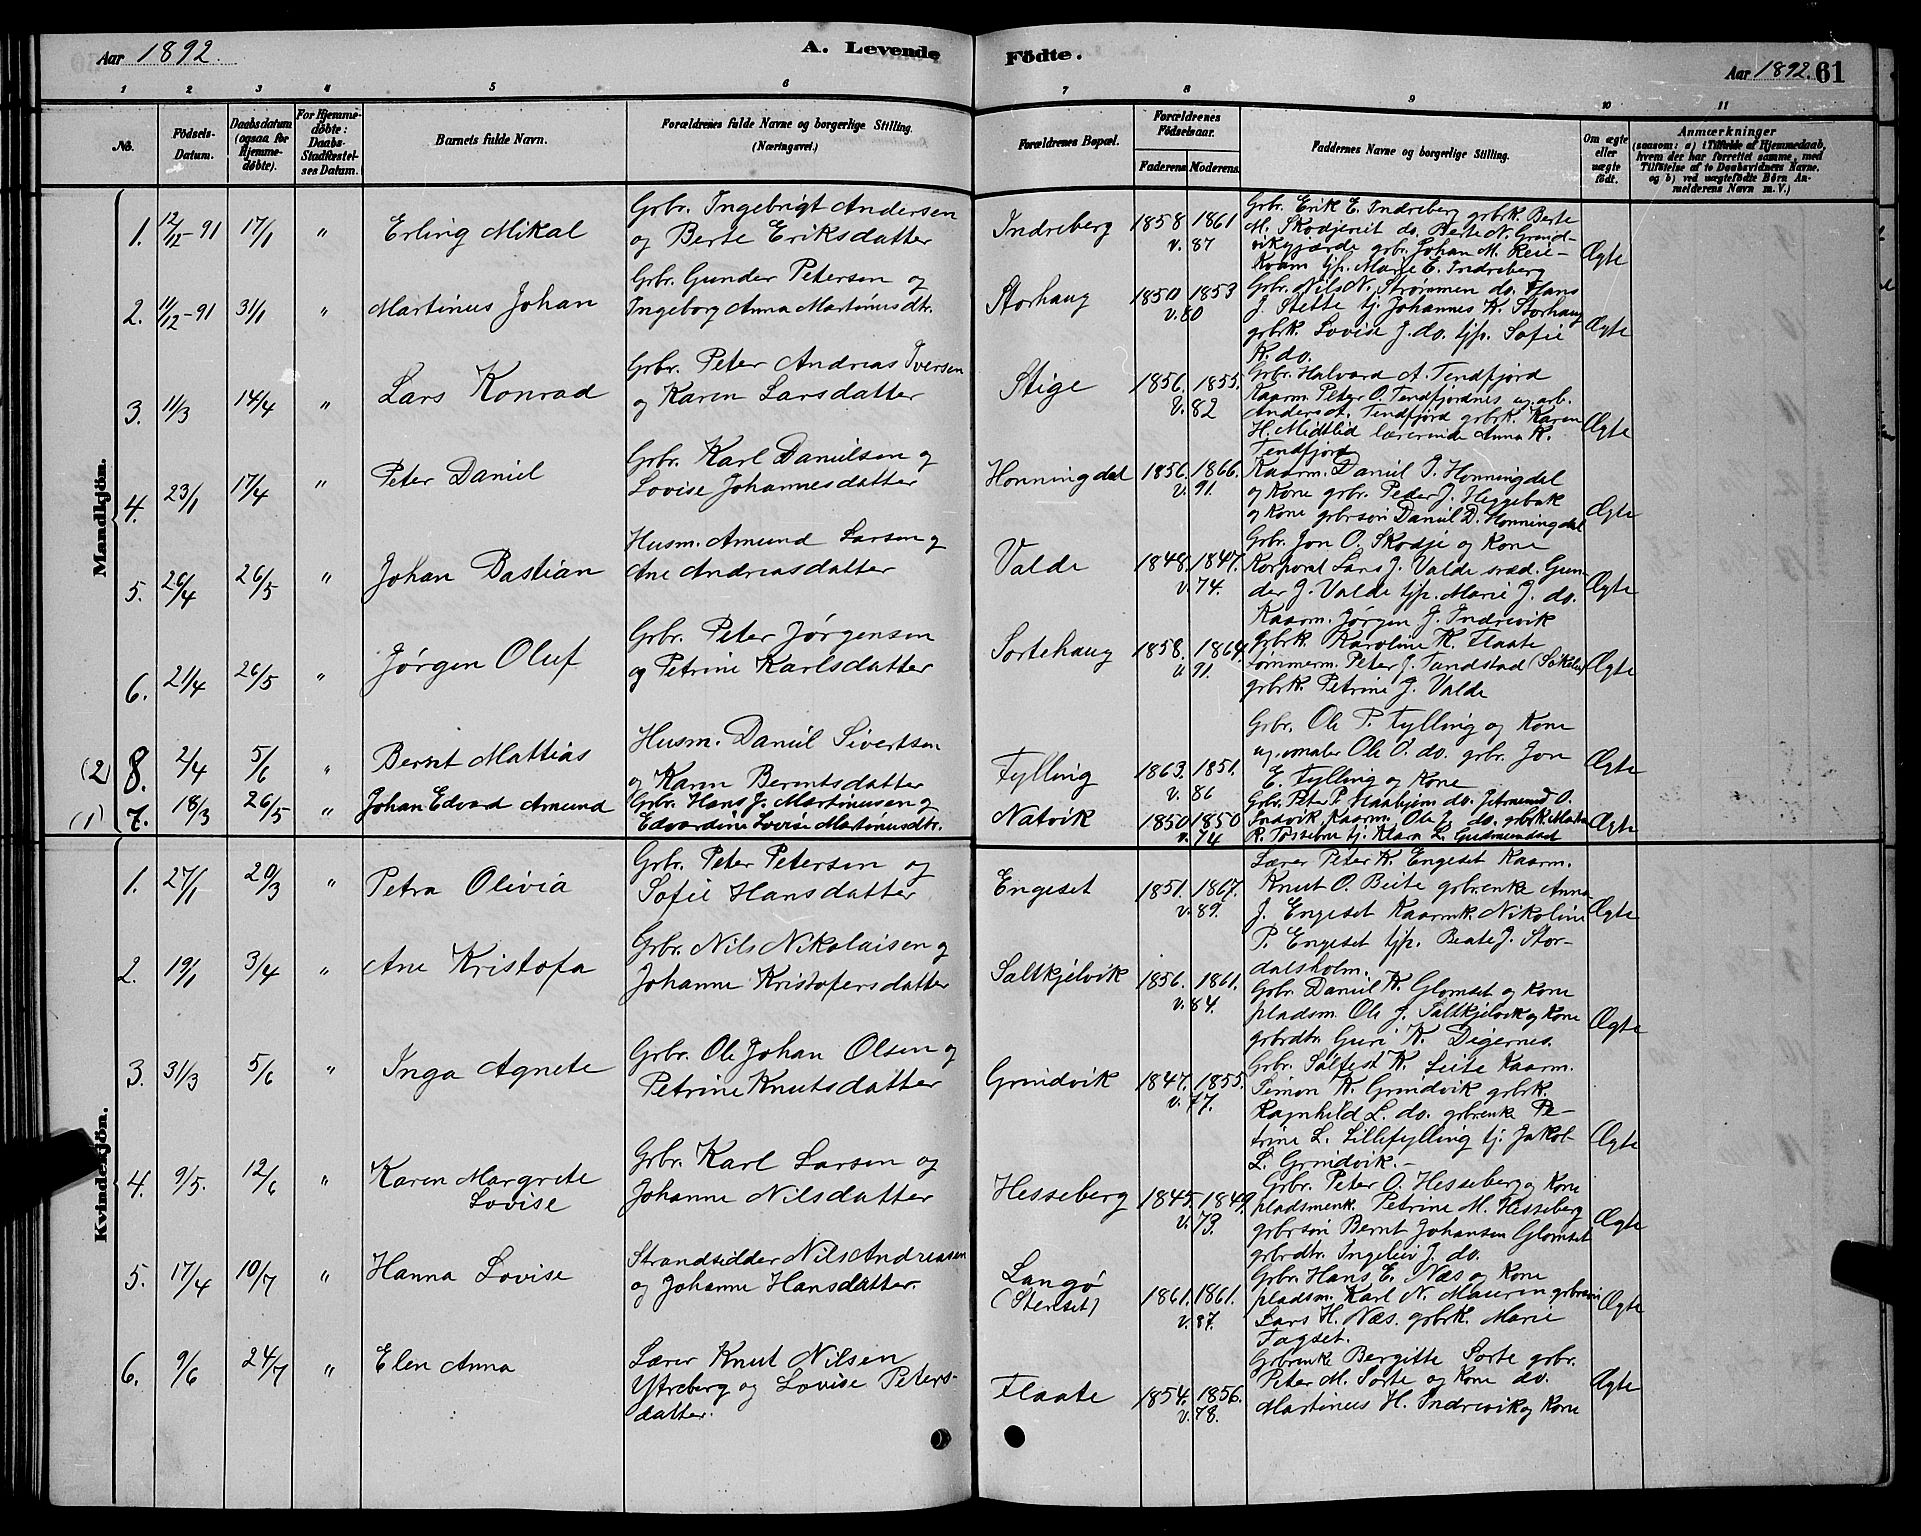 Aar 1892.
A. Levende Födte.
Aar 1892. 61
1 2 3 4 5 6 7 8 9 10 11
No.
Födsels-Datum.
Daabsdatum (ogsaa for Hjemmedöbte).
For Hjemmedöbte: Daabs-Stadfæstelses Datum.
Barnets fulde Navn.
Forældrenes fulde Navne og borgerlige Stilling. (Næringsvei.)
Forældrenes Bopæl.
Forældrenes Födselsaar.
Faderens. Moderens.
Faddernes Navne og borgerlige Stilling.
Om ægte eller uægte födt.
Anmærkninger
(saasom: a) i Tilfælde af Hjemmedaab, hvem der har forrettet samme, med Tilföielse af to Daabsvidners Navne, og b) ved uægtefödte Börn Anmelderens Navn m. V.)
Mandkjön.
1. 12/12-91 17/1 " Erling Mikal
Grbr. Ingebrigt Andersen
og Berte Eriksdatter
Indreberg 1858 1861
v. 87
Grbr. Erik E. Indreberg grbrk. Berte
M. Skodjereit do. Berte N. Grind-
vikgjærde grbr. Johan M. Reie-
Kvam tjp. Marie E. Indreberg
Ægte
2. 11/12-91 31/1 " Martinus Johan
Grbr. Gunder Petersen og
Ingeborg Anna Martinusdtr.
Storhaug 1850 1853
v. 80
Grbr. Nils N. Strømmen do. Hans
J. Stette tj. Johannes K. Storhaug
grbrk. Lovise J. do. tjp. Sofie
K. do.
Ægte
3. 11/3 14/4 " Lars Konrad
Grbr. Peter Andreas Iversen
og Karen Larsdatter
Stige 1856. 1855.
v. 82
Grbr. Halvard A. Tendfjord
Kaarm. Peter O. Tendfjordnes ug. arb.
Anders A. Tendfjord grbrk. Karen
H. Midtlid lærerinde Anna K.
Tendfjord
Ægte
4. 23/1 17/4 " Peter Daniel
Grbr. Karl Danielsen og
Lovise Johannesdatter
Honningdal 1856. 1866.
v. 91.
Kaarm. Daniel P. Honningdal
og Kone grbr. Peder J. Heggebak
og Kone grbrsøn Daniel D. Honningdal
Ægte
5. 26/4 26/5 " Johan Bastian
Husm. Amund Larsen og
Ane Andreasdatter
Valde 1848. 1847.
v. 74.
Grbr. Jon O. Skodje og Kone
Korporal Lars J. Valde sræd. Gun-
der J. Valde tjp. Marie J. do.
Ægte
6. 21/4 26/5 " Jørgen Oluf
Grbr. Peter Jørgensen
og Petrine Karlsdatter
Sortehaug 1858. 1864.
v. 91.
Kaarm. Jørgen J. Indrevik
grbrk. Karoline K. Flaate
Lommerm. Peter J. Tandstad
grbrk. Petrine J. Valde
Ægte
(2) 8. 2/4 5/6 " Bernt Mattias
Husm. Daniel Sivertsen
og Karen Berntsdatter
Fylling 1863. 1851.
v. 86
Grbr. Ole P. Fylling og Kone
ug. maler Ole O. do. grbr. Jon
E. Fylling og Kone
Ægte
(1) 7. 18/3 26/5 " Johan Edvard Amund
Grbr. Hans J. Martinussen og
Edvardine Lovise Martinusdtr.
Natvik 1850 1850
v. 74
Grbr. Peter P. Haahjem do. Jetmund O.
Indvik, Kaarm. Ole J. do. grbrk. Marta
R. Tøssebro tj. Klara L. Gudmundsd
Ægte
Kvindekjön.
1. 27/1 20/3 " Petra Olivia
Grbr. Peter Petersen og
Sofie Hansdatter
Engeset 1851. 1867.
v. 89.
Lærer Peter K. Engeset Kaarm.
Knut O. Beite grbrenke Anna
J. Engeset Kaarmk. Nikoline
P. Engeset tjp. Beate J. Stor-
dalsholm.
Ægte
2. 19/1 3/4 " Ane Kristofa
Grbr. Nils Nikolaisen og
Johanne Kristofersdatter
Saltkjelvik 1856. 1861.
v. 84.
Grbr. Daniel K. Glomset og Kone
pladsm. Ole J. Saltkjelvik og Kone
grbrdtr. Guri K. Digernes.
Ægte
3. 31/3 5/6 " Inga Agnete
Grbr. Ole Johan Olsen og
Petrine Knutsdatter
Grindvik 1847. 1855.
v. 77.
Grbr. Sølfest K. Leite Kaarm.
Simon K. Grindvik grbrk.
Ragnhild L. do. grbrenke Pe-
trine L. Lillefylling tj. Jakob
L. Grindvik.-
Ægte
4. 9/5. 12/6 " Karen Margrete
Lovise
Grbr. Karl Larsen og
Johanne Nilsdatter
Hesseberg 1845. 1849.
v. 73.
Grbr. Peter O. Hesseberg og Kone
pladsmenk. Petrine M. Hesseberg
grbrsøn Bernt Johansen Glomset
grbrdtr. Ingeleiv J. do.
Ægte
5. 17/4 10/7 " Hanna Lovise
Strandsidder Nils Andreassen
og Johanne Hansdatter.
Langø
(Stenset) 1861. 1861.
v. 87.
Grbr. Hans E. Næs og Kone
pladsm. Karl N. Mauren grbrsøn
Lars H. Næs. grbrk. Marie
Fagset.
Ægte
6. 9/6 24/7 " Elen Anna
Lærer Knut Nilsen
Ytreberg og Lovise Peters-
datter.
Flaate 1854. 1856.
v. 78.
Grbrenke Bergitte Sorte grbr.
Peter M. Sorte og Kone do.
Martinus H. Indrevik og Kone
Ægte